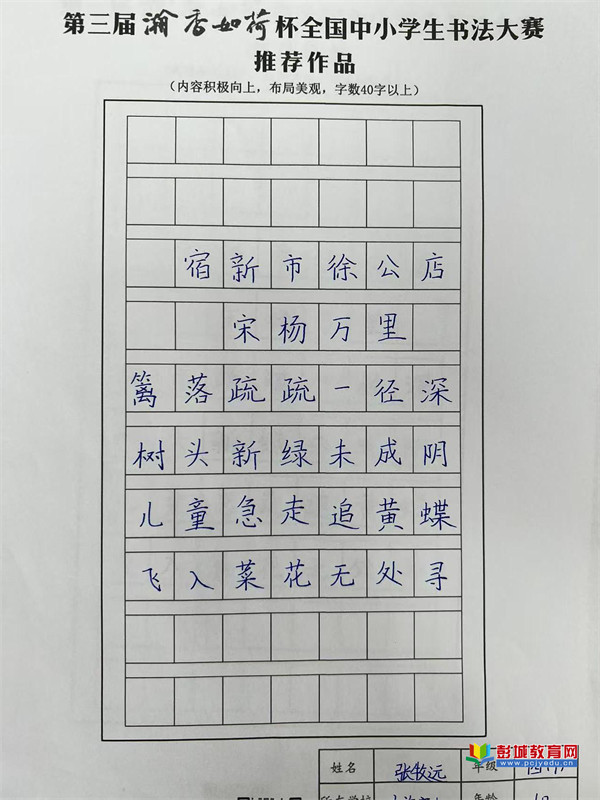 第三届瀚香如荷杯全国中小学生书法大赛
推荐作品
（内容积极向上，布局美观，字数40字以上）
宿新市徐公店
宋杨万里
篱落疏疏一径深
树头新绿未成阴
儿童急走追黄蝶
飞入菜花无处寻
姓名 张牧远 年级
彭城教育网
www.pcjyw.com
所在学校 年龄